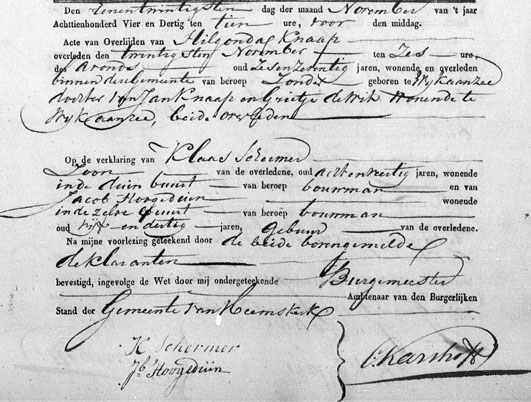 Den eenentwintigsten dag der maand November van 't jaar
Achttienhonderd Vier en Dertig ten tien ure, voor den middag.
Acte van Overlijden van Hilgonda Knaap
overleden den twintigsten November ten Zes ure,
des Avonds oud Zesenzeventig jaren, wonende en overleden
binnen de gemeente van beroep Zonder geboren te Wijk aan Zee
dochter van Jan Knaap en Grietje de Wit Wonende te
Wijk aan zee, beide overleden
Op de verklaring van Klaas Schermer
Zoon van de overledene, oud achtenveertig jaren, wonende
in de duin buurt van beroep bouwman en van
Jacob Hoogeduin wonende
in de zelve Buurt van beroep bouwman
oud en dertig jaren, gebuur van de overledene.
Na mijne voorlezing geteekend door de beide bovengemelde
deklaranten
bevestigd, ingevolge de Wet door mij ondergeteekende Burgemeester
Ambtenaar van den Burgerlijken
Stand der Gemeente van Heemskerk
K Schermer
Jb Hoogeduin